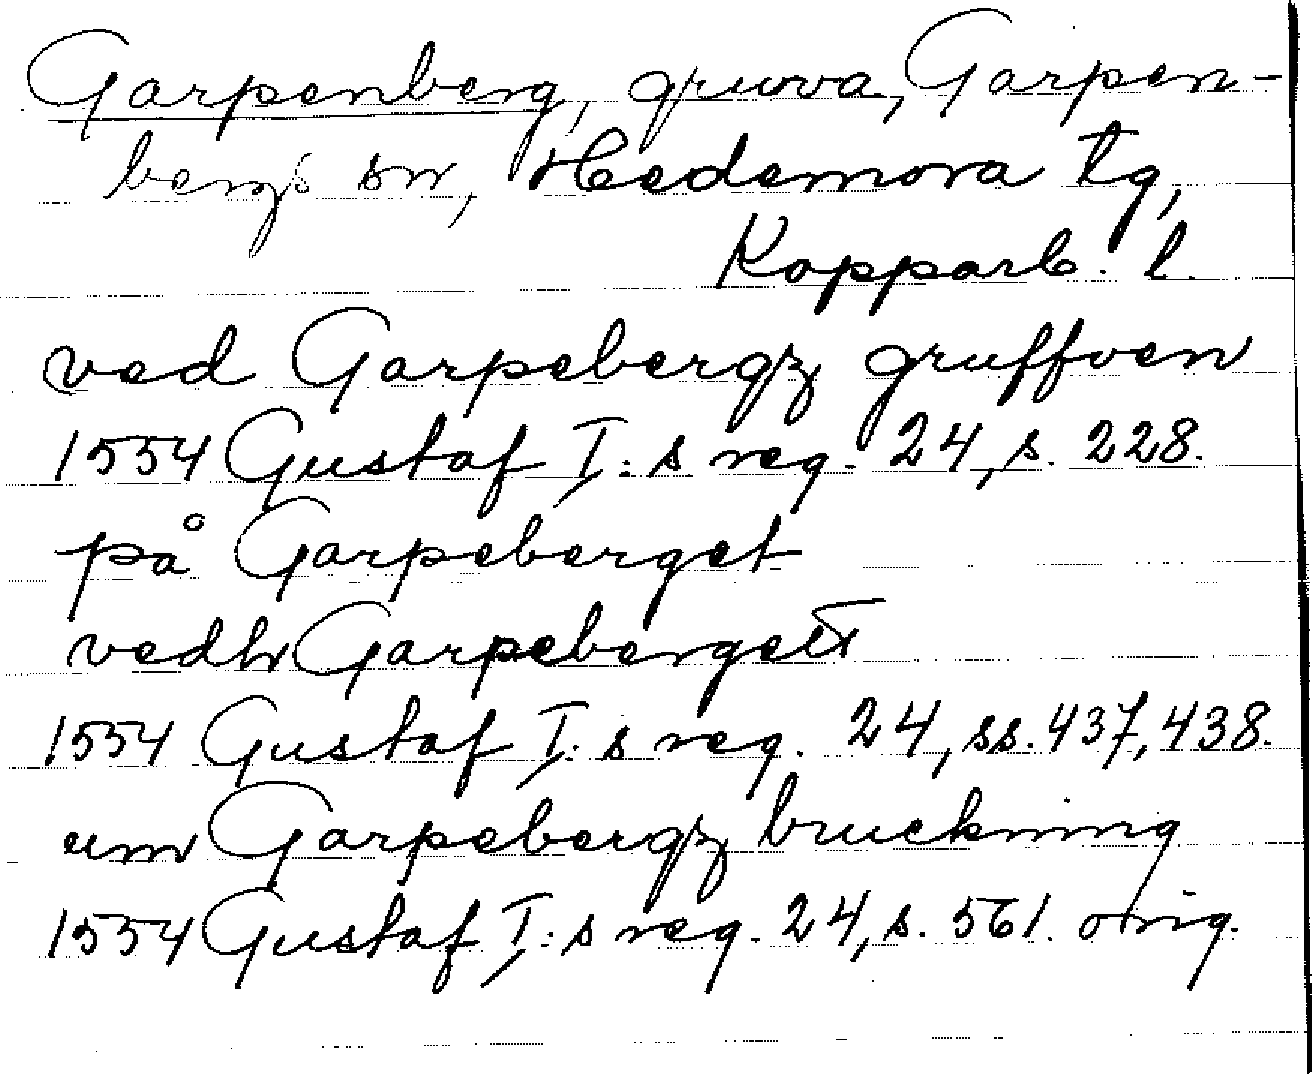 Garpenberg, gruva, Garpen-
bergs sn, Hedemora tg,
Kopparb. l.
ved Garpebergz gruffven
1554 Gustaf I:s reg. 24, s. 228.
på Garpeberget
vedh Garpebergett
1554 Gustaf I:s reg. 24, ss. 437, 438.
um Garpebergz bruckning
1554 Gustaf I:s reg. 24, s. 561. orig.